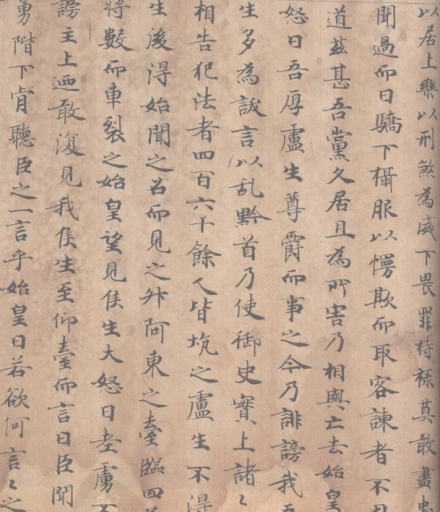 以居上樂以刑煞為威下畏罪持祿莫敢盡忠
聞過而日驕下攝服以慢欺而取容諫者不
道茲甚吾黨久居且為所害乃相與亡去始皇
怒曰吾厚盧生尊爵而事之今乃誹謗我
生多為訞言以乱黔首乃使御史實上諸〻
相告犯法者四百六十餘人皆坑之盧生不得
生後得始聞之召而見之升阿東之臺臨四
將數而車裂之始皇望見侯生大怒曰老虜不
謗主上迺敢復見我侯生至仰臺而言曰臣聞
勇階下肯聽臣之一言乎始皇曰若欲何言〻之